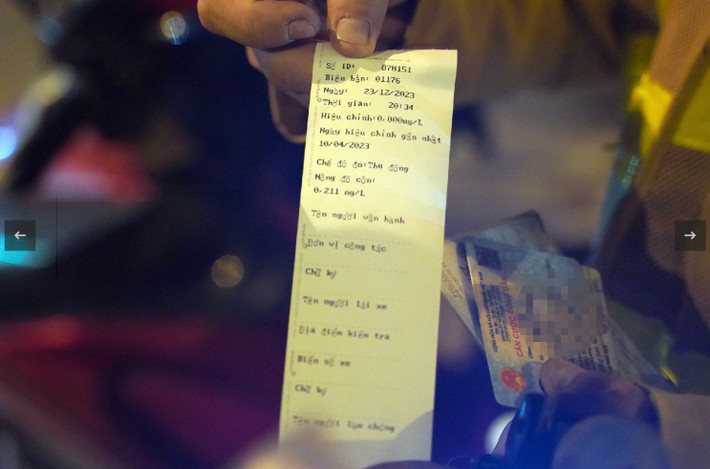 Số ID: 078151
Biên bản: 01176
Ngày: 23/12/2023
Thời gian: 20:34
Hiệu chỉnh:0.000mg/L
Ngày hiệu chỉnh gần nhất
10/04/2023
Chế độ đo:Thụ động
Nồng độ cồn:
0.211 mg/L
Tên người vận hành
Đơn vị công tác
Chữ ký
Tên người lái xe
Địa điểm kiểm tra
Biển số xe
Chữ ký
Tên người làm chứng
CĂN CƯỚC CÔNG DÂN